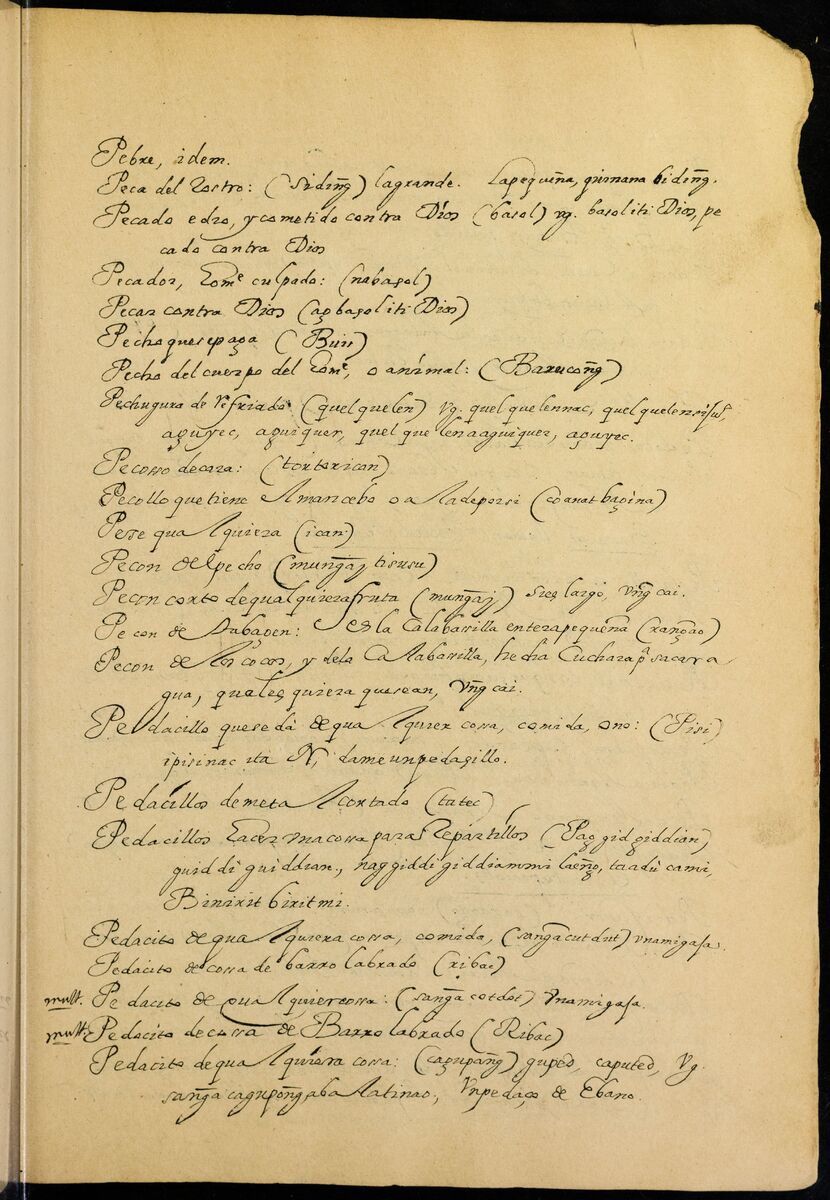 Pebre, idem.
Peca del Rostro: (siding̃) lagrande. Lapequeña, gismana biding̃.
Pecado edro, y cometido contra Dios (basol) vg. basoliti Dios, pe
cado contra Dios
Pecador, homᵉ culpado: (nabasol)
Pecar contra Dios (aȩbasol iti Dios)
Pecho quesepaga (Buis)
Pecho del cuerpo del homᵉ, o animal: (Barucong̃)
Pechugura de resfriado (quel quelen) vg. quel quelennac, quel quelen
aguyec, aguiquer, quel quelen aaguiquer, aguyec.
Pecoso decara: (tortorican)
Pecollo quetiene Almancebo o a Aladeporsi (coanat bagina)
Pese qualquiera (ican)
Pecon del pecho (mung̃aj tisusu)
Pecon corto dequalquierafruta (mung̃aj) sies largo, vng̃cai.
Pecon de Subaoen: es la Calabasilla enterapequeña (rang̃ao)
Pecon de los cocos, y dela Calabasilla, hecha Cuchara pᵃ sacara
gua, quales quiera quesean, vng̃cai.
Pedacillo quesedà dequalquier cossa, comida, ono: (Pisi)
ipisinac ita N, dameunpedasillo.
Pedacillos demetal cortado (tatec)
Pedacillos hacer vnacossa para Repartillos (Pag gid giddian)
guiddi guiddian, nag giddi giddiammi laeng̃o, taadu cami,
Binirit biritmi.
Pedacito dequalquiera cossa, comida, (sang̃a cut dut) vnamigasa.
Pedacito de cossa de barro labrado (ribac)
mult. Pedacito de qualquiercossa: (sang̃a cotdot) vnamigasa
mult. Pedacito decossa de Barro labrado (Ribac)
Pedacito dequalquiera cossa: (cagupang̃) guped, caputed, vg.
sang̃a cagupong̃aba latinao, vnpedaço de Ebano.